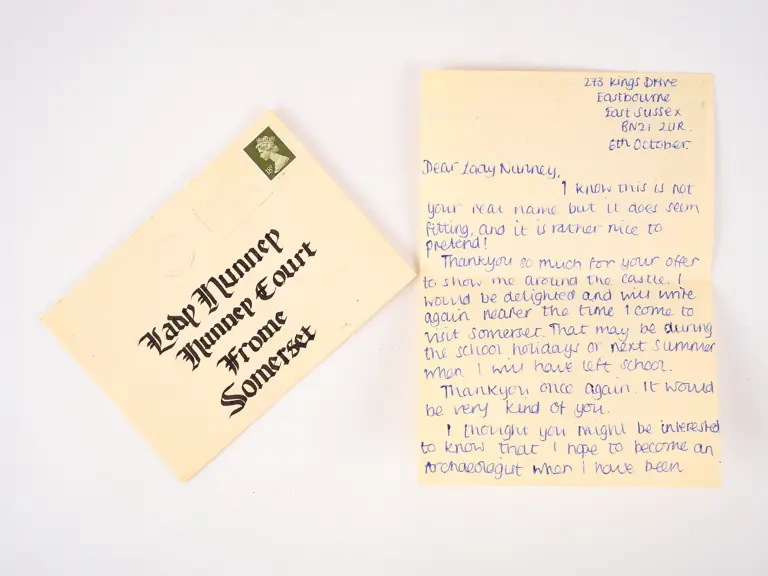 Lady Nunney
Nunney Court
Frome
Somerset
273 Kings Drive
Eastbourne
East Sussex
BN21 2UR.
6th October.
Dear Lady Nunney,
I know this is not
your real name but it does seem
fitting, and it is rather nice to
pretend!
Thankyou so much for your offer
to show me around the castle. I
would be delighted and will write
again nearer the time I come to
visit Somerset. That may be during
the school holidays or next summer
when I will have left school.
Thankyou once again. It would
be very kind of you.
I thought you might be interested
to know that I hope to become an
Archaeologist when I have been